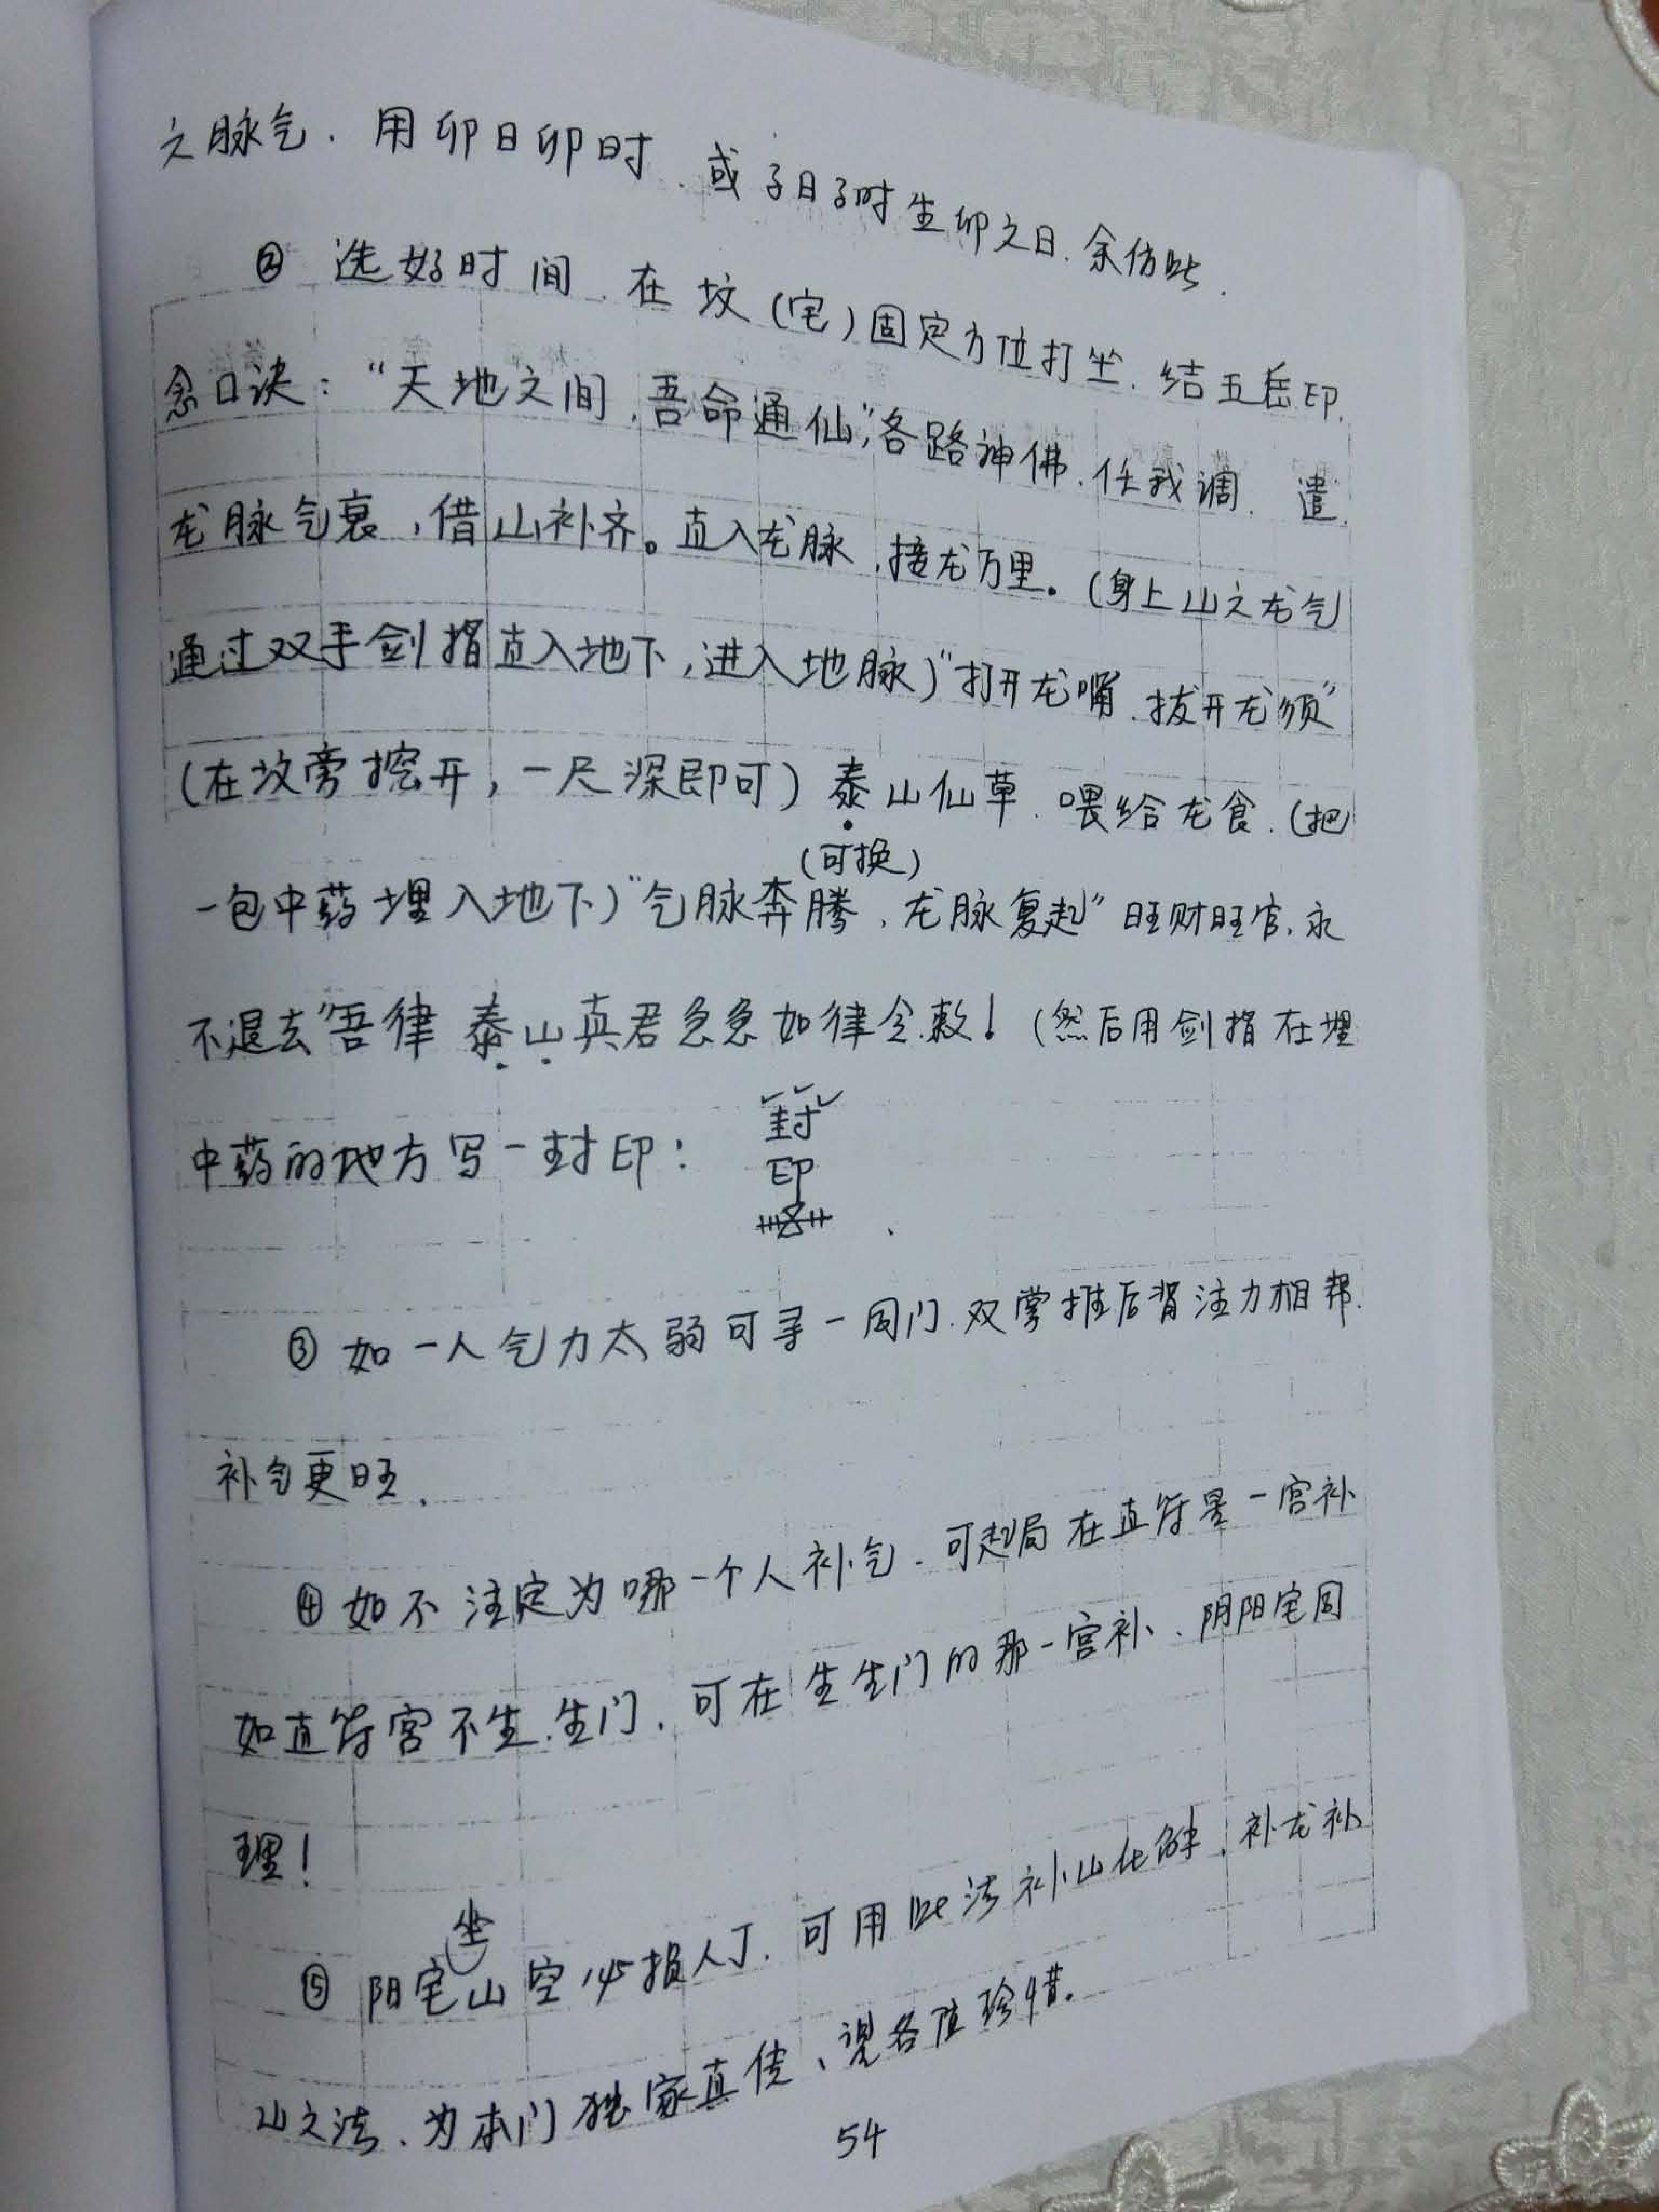 之脉气.用卯日卯时.或子日子时生卯之日.余仿此.
② 选好时间.在坟(宅)固定方位打坐.结五岳印.
念口诀:“天地之间,吾命通仙”,各路神佛.任我调.遣.
龙脉气衰,借山补齐。直入龙脉,接龙万里。(身上山之龙气
通过双手剑指直入地下,进入地脉)“打开龙嘴.拔开龙须”
(在坟旁挖开,一尺深即可)泰山仙草.喂给龙食.(把
(可换)
一包中药埋入地下)“气脉奔腾,龙脉复起”旺财旺官.永
不退去“吾律 泰山真君急急如律令.敕!(然后用剑指在埋
中药的地方写一封印:
封
印
③ 如一人气力太弱可寻一同门.双掌推后背注力相帮.
补气更旺.
④ 如不注定为哪一个人补气.可起局在直符星一宫补
如直符宫不生.生门.可在生生门的那一宫补.阴阳宅同
理!
坐
⑤ 阳宅山空必损人丁.可用此法补山化解.补龙补
山之法、为本门独家真传、望各位珍惜。
54